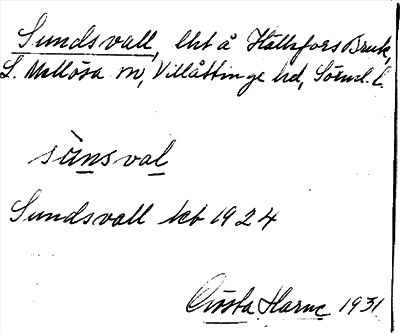 Sundsvall, lht å Hälleforsbruk,
L. Mellösa sn, Villåttinge hd, Söderml. l.
sùnsval
Sundsvall kb 1924
Gösta Harne 1931